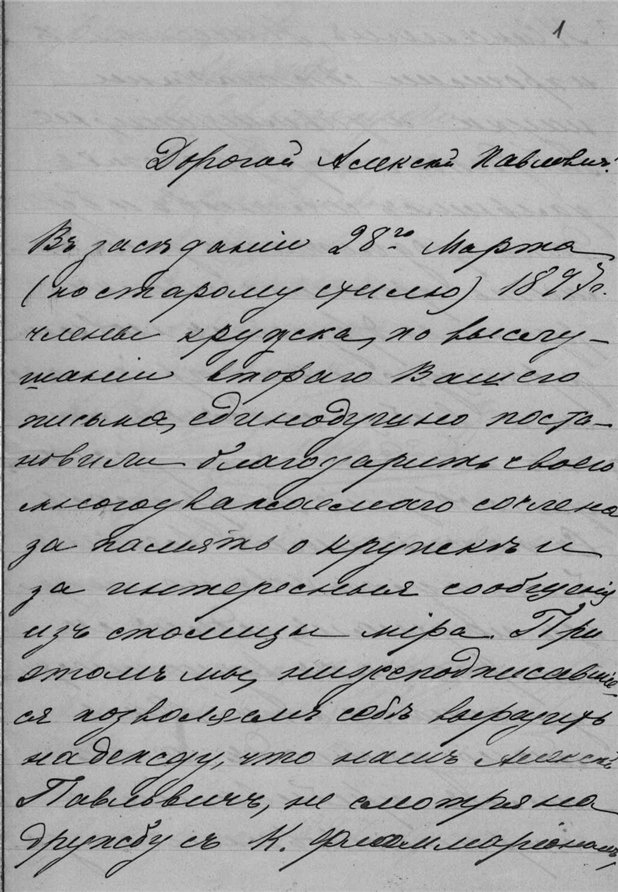 1
Дорогой Алексѣй Павловичъ!
Въ засѣданіи 28го Марта
(по старому стилю) 1897 г.
члены кружка, по выслу-
шаніи втораго Вашего
письма, единодушно поста-
новили благодарить своего
многоуважаемаго сочлена
за память о кружкѣ и
за интересныя сообщенія
изъ столицы міра. При
этомъ мы, нижеподписавшіе-
ся позволяемъ себѣ выразить
надежду, что нашъ Алексѣй
Павловичъ, не смотря на
дружбу съ К. Фламмаріономъ,